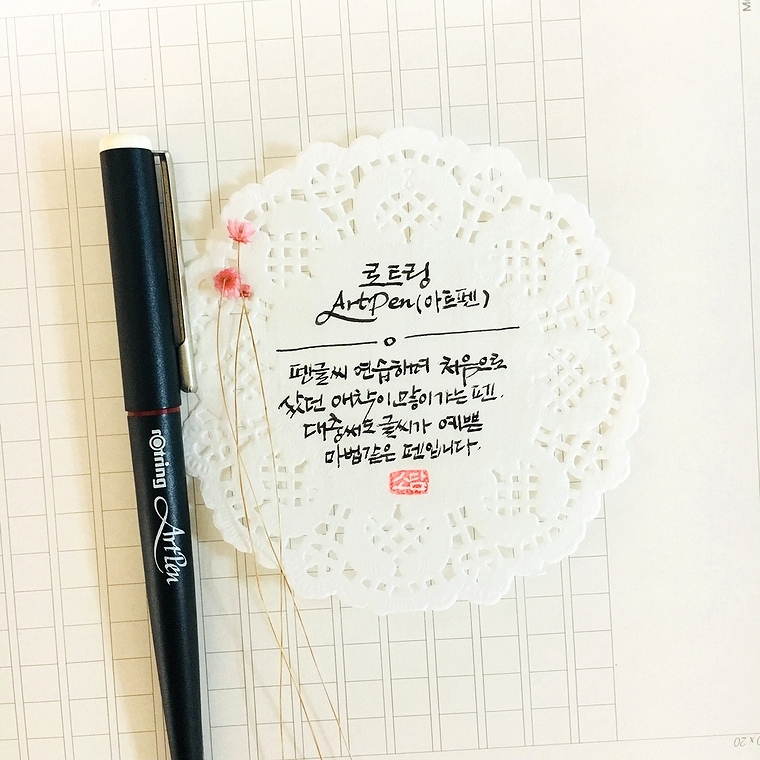 로트링
ArtPen(아트펜)
펜글씨 연습하며 처음으로
샀던 애착이 많이가는 펜.
대충써도 글씨가 예쁜
마법같은 펜입니다.
소담
rotring ArtPen